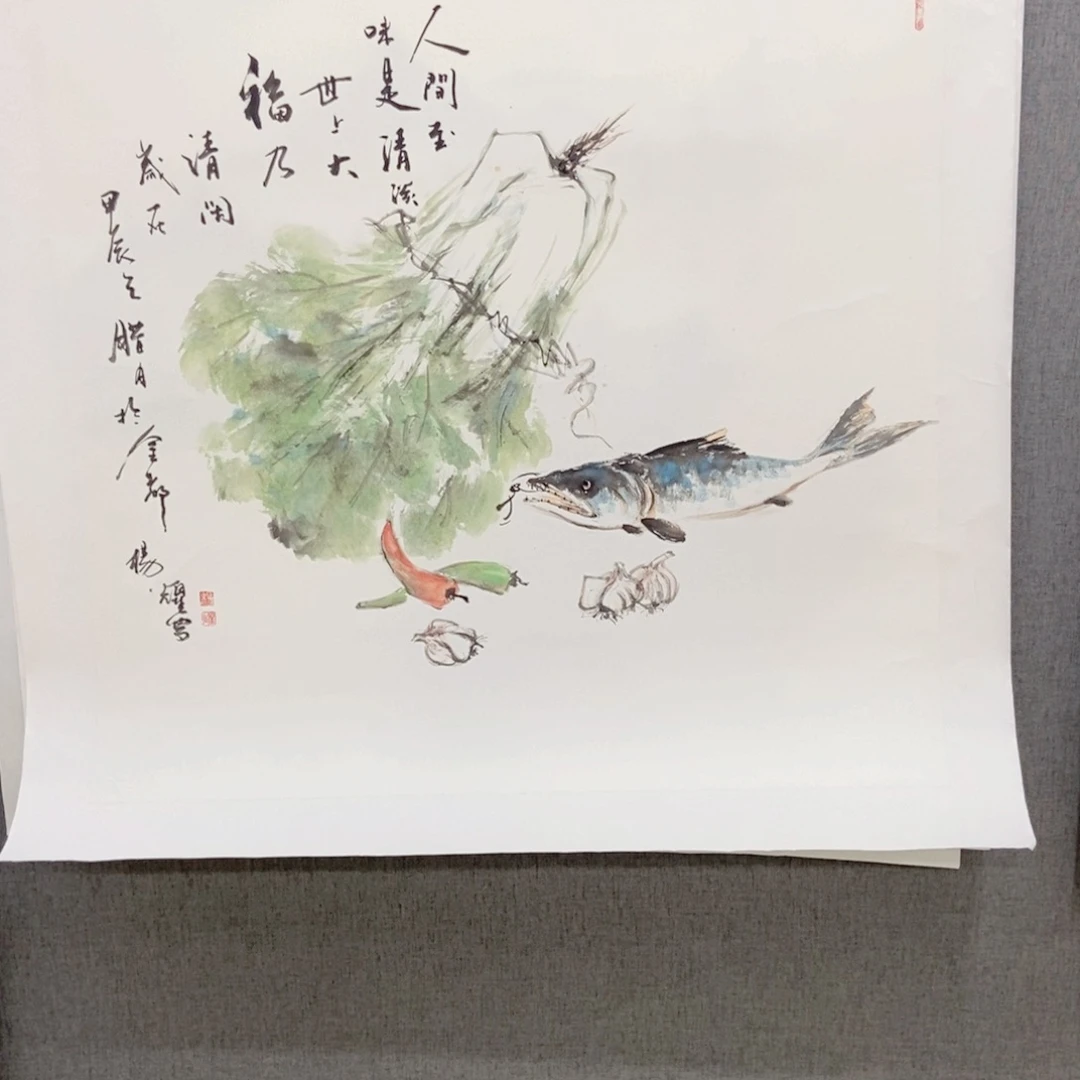 人間至
味是清淡
世上大
福乃
清闲
歲在
甲辰之臘月於金都
楊耀寫